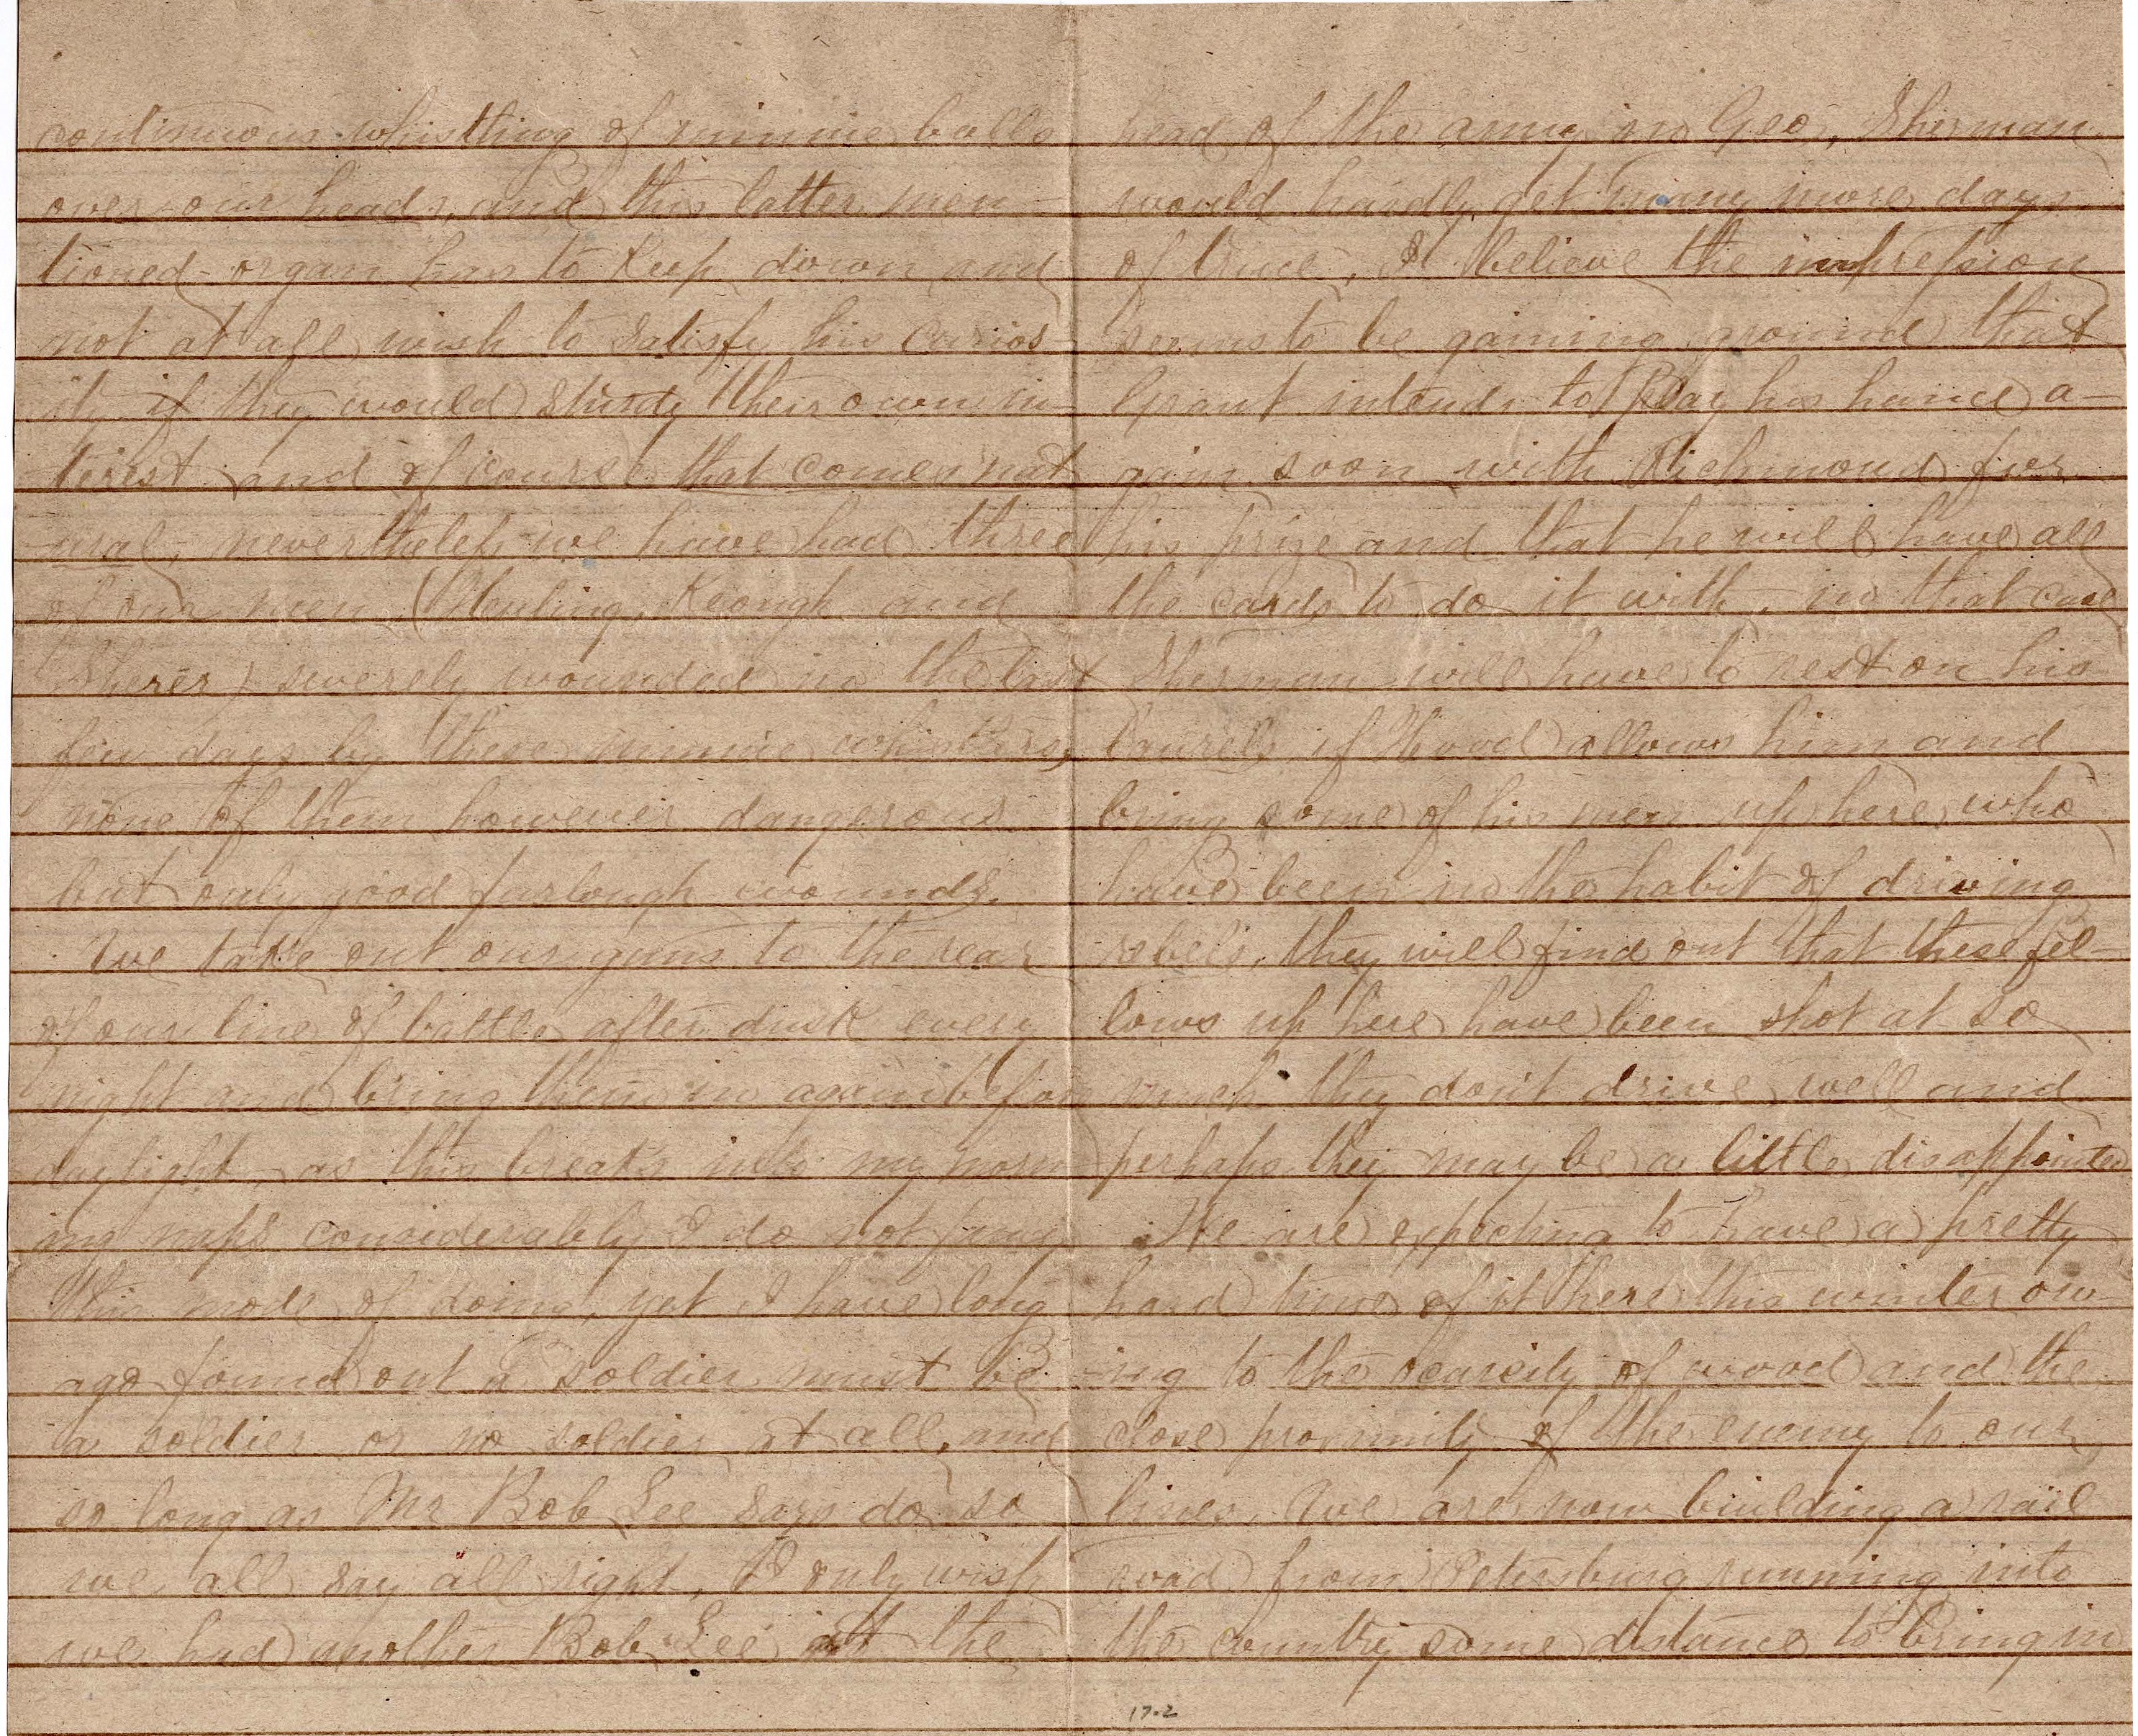 continuous whistling of minnie balls
over our heads, and this latter men-
tioned organ has to keep down and
not at all wish to satisfy his curios-
ity if they would study their own in-
terest and of course that comes nat-
ural, nevertheless we have had three
of our men, ( Keough and
Sherer) severely wounded in the last
few days by these minnie whistlers,
none of them however dangerous
but only good furlough wounds.
We take out our guns to the rear
of our line of battle after dusk every
night and bring them in again before
daylight, as this breaks into my morn
ing naps considerably I do not fancy
this mode of doing, yet I have long
ago found out a soldier must be
a soldier or no soldier at all, and
so long as Mr Bob Lee says do so
we all say all right, I only wish
we had another Bob Lee at the
head of the army in Geo, Sherman
would hardly get many more days
of truce, I believe the impression
seems to be gaining ground that
Grant intends to play his hand a-
gain soon with Richmond for
his prize and that he will have all
the cards to do it with, in that case
Sherman will have to rest on his
laurels, if Hood allows him and
bring some of his men up here, who
have been in the habit of driving
rebels, they will find out that these fel-
lows up here have been shot at so
much they don't drive well and
perhaps they may be a little disappointed
We are expecting to have a pretty
hard time of it here this winter ow-
ing to the scarcity of wood and the
close proximity of the enemy to our
lines, We are now building a rail
road from Petersburg running into
the country some distance to bring in
17.2